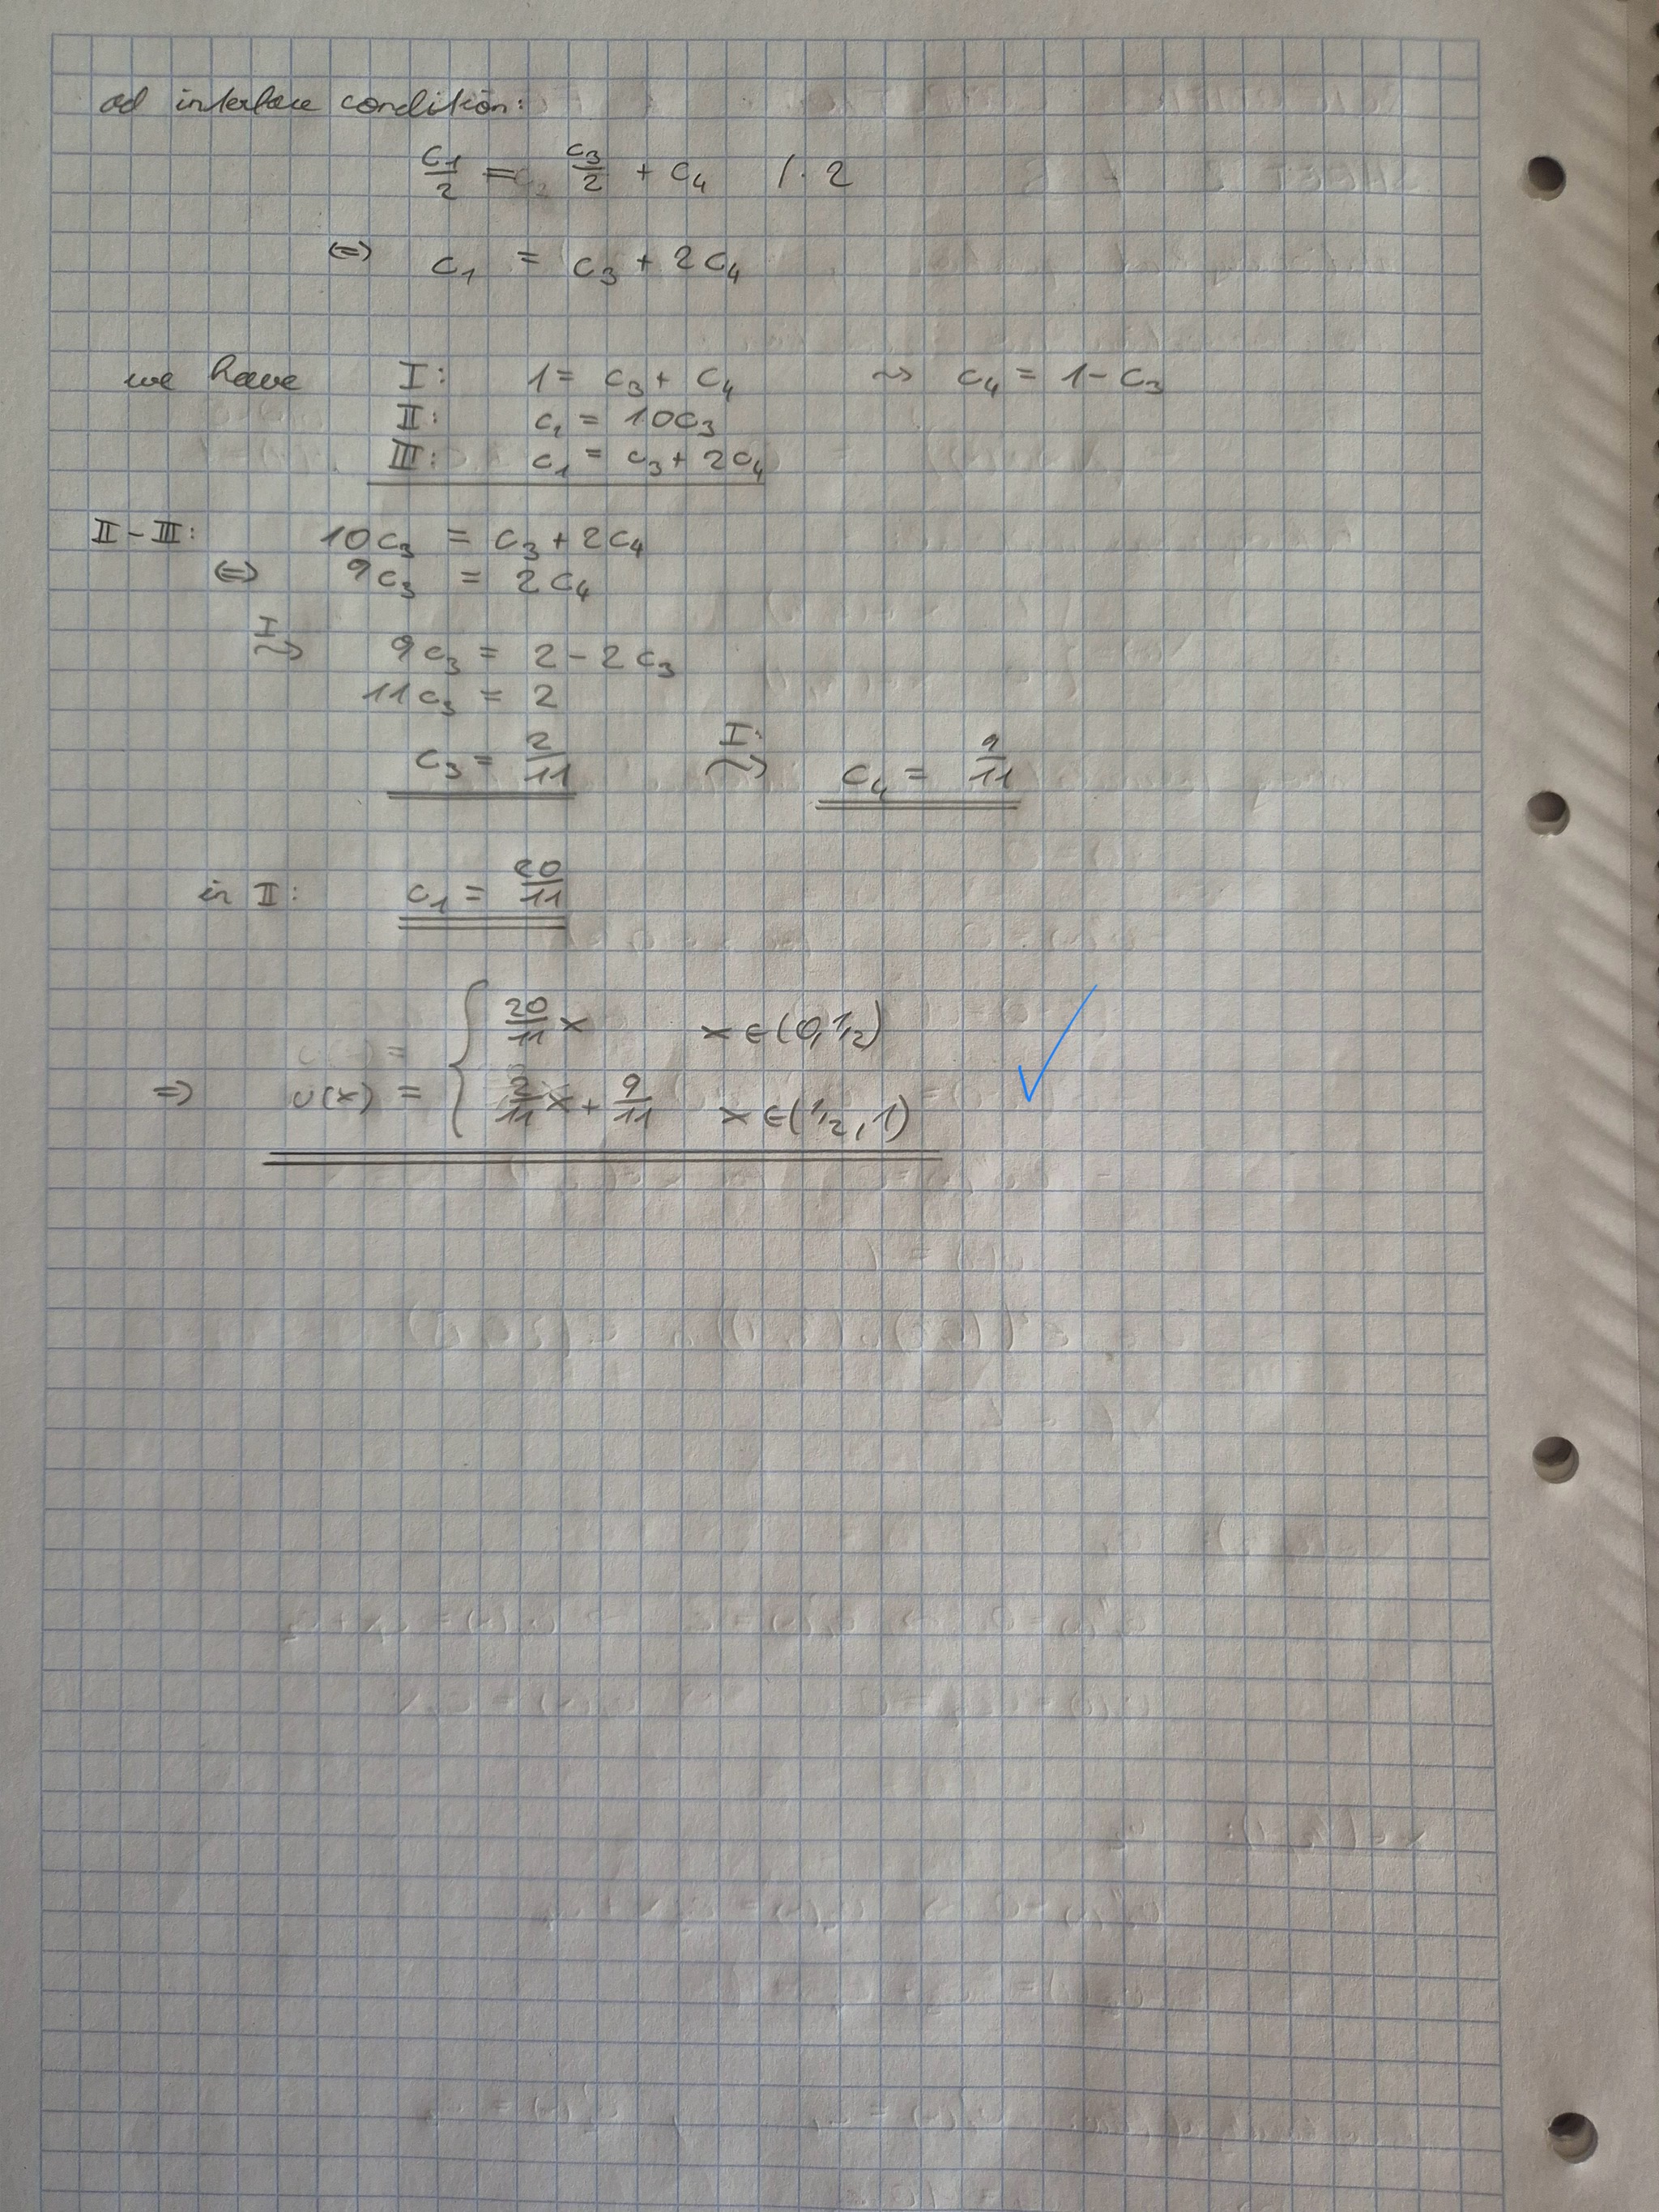 ad interface condition:
c₁/2 = c₃/2 + c₄ /· 2
⇔ c₁ = c₃ + 2c₄
we have I: 1 = c₃ + c₄ ⇝ c₄ = 1 - c₃
II: c₁ = 10c₃
III: c₁ = c₃ + 2c₄
II - III: 10c₃ = c₃ + 2c₄
⇔ 9c₃ = 2c₄
I ⇝ 9c₃ = 2 - 2c₃
11c₃ = 2
c₃ = 2/11 I: ⇝ c₄ = 9/11
in II: c₁ = 20/11
20/11 x x ∈ (0, 1/2)
⇒ u(x) = { 2/11 x + 9/11 x ∈ (1/2, 1)